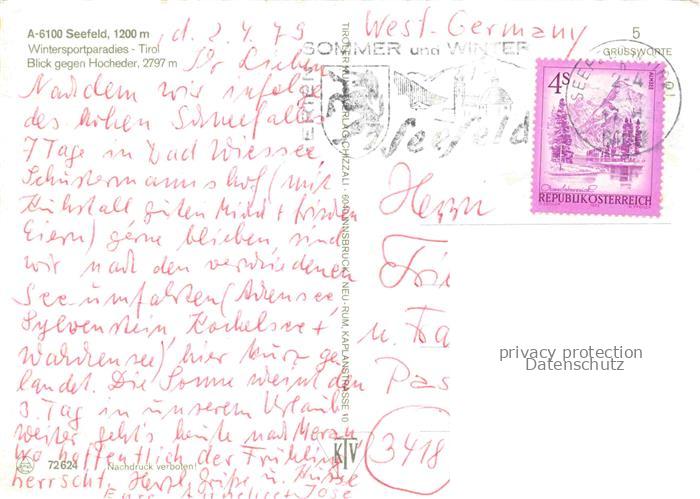 A-6100 Seefeld, 1200 m
Wintersportparadies - Tirol
Blick gegen Hocheder, 2797 m
, d. 2.4.79
Ihr Lieben
Nachdem wir infolge
des hohen Schneefalls
7 Tage in Bad Wiessee,
(mit
Kuhstall guten Milch + frischen
Eiern) gerne blieben, sind
wir nach den verschiedenen
Seeumfahrten (Achensee,
Sylvenstein, Kochelsee +
Walchensee) hier kurz ge
landet. Die Sonne scheint den
3. Tag in unserem Urlaub
weiter geht's heute nach Meran
wo hoffentlich der Frühling
herrscht. Herzl. Grüße u. Küsse
Eure
72624 Nachdruck verboten!
TIROLER KUNSTVERLAG CHIZZALI · 6040 INNSBRUCK, NEU-RUM, KAPLANSTRASSE 10
KTV
West-Germany
5
GRUSSWORTE
SOMMER und WINTER
Seefeld
4S
REPUBLIK ÖSTERREICH
Herrn
u. Fa
Pas
3418
privacy protection
Datenschutz